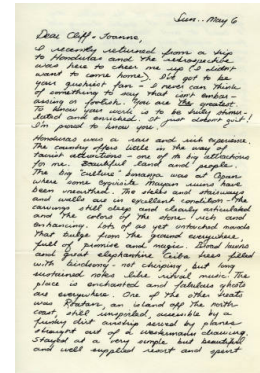 Sun.. May 6
Dear Cliff + Joanne,
I recently returned from a trip
to Honduras and the retrospective
was here to cheer me up (I didn't
want to come home). I've got to be
your gushiest fan - I never can think
of something to say that isn't embar-
assing or foolish. You are the greatest
To know your work is to be truly stimu-
lated and enriched. It just doesn't quit!
I'm proud to know you.
Honduras was a rare and rich experience.
The country offers little in the way of
tourist attractions - one of its big attractions
for me. Beautiful land and people.
The big "culture" bonanza was at Copan
where some exquisite Mayan ruins have
been unearthed. The stelas and stairways
and walls are in excellent condition - the
carvings still deep and clearly articulated
and the colors of the stone rich and
enhancing. Lots of as yet untouched mounds
that bulge from the ground everywhere,
full of promise and magic.
and great elephantine Ceiba trees filled
with birdsong - not chirping, but long
sustained notes like ritual music. The
place is enchanted and fabulous ghosts
are everywhere. One of the other treats
was Roatan, an island off the north
coast, still unspoiled, accessible by a
funky dirt airstrip served by planes
straight out of a Westermann drawing.
Stayed at a very simple but beautiful
and well supplied resort and spent